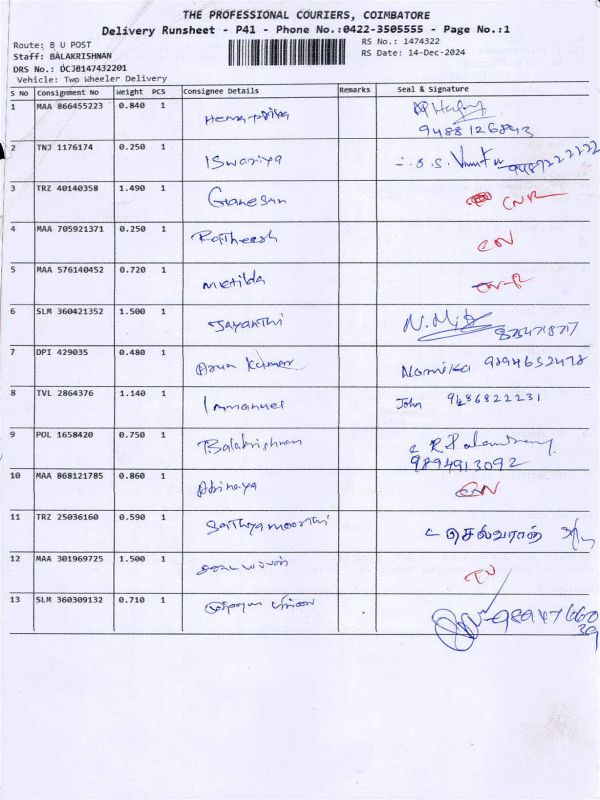 THE PROFESSIONAL COURIERS, COIMBATORE
Delivery Runsheet - P41 - Phone No.:0422-3505555 - Page No.:1
Route: B U POST
Staff: BALAKRISHNAN
DRS No.: DCJB147432201
Vehicle: Two Wheeler Delivery
RS No.: 1474322
RS Date: 14-Dec-2024
S No Consignment No Weight PCS Consignee Details Remarks Seal & Signature
1 MAA 866455223 0.840 1 Hemapriya
9488126843
2 TNJ 1176174 0.250 1 ISwariya 9489222222
3 TRZ 40140358 1.490 1 Ganesan CNR
4 MAA 705921371 0.250 1 Ratheesh CN
5 MAA 576140452 0.720 1 Metilda
6 SLM 360421352 1.500 1 Jayanthi
7 DPI 429035 0.480 1 Arun Kumar 9894632478
8 TVL 2864376 1.140 1 Immanuel John 9486822231
9 POL 1658420 0.750 1 Balakrishnan
9894913092
10 MAA 868121785 0.860 1 Abinaya
11 TRZ 25036160 0.590 1 Sathyamoorthi செல்வராஜ்
12 MAA 301969725 1.500 1
13 SLM 360309132 0.710 1